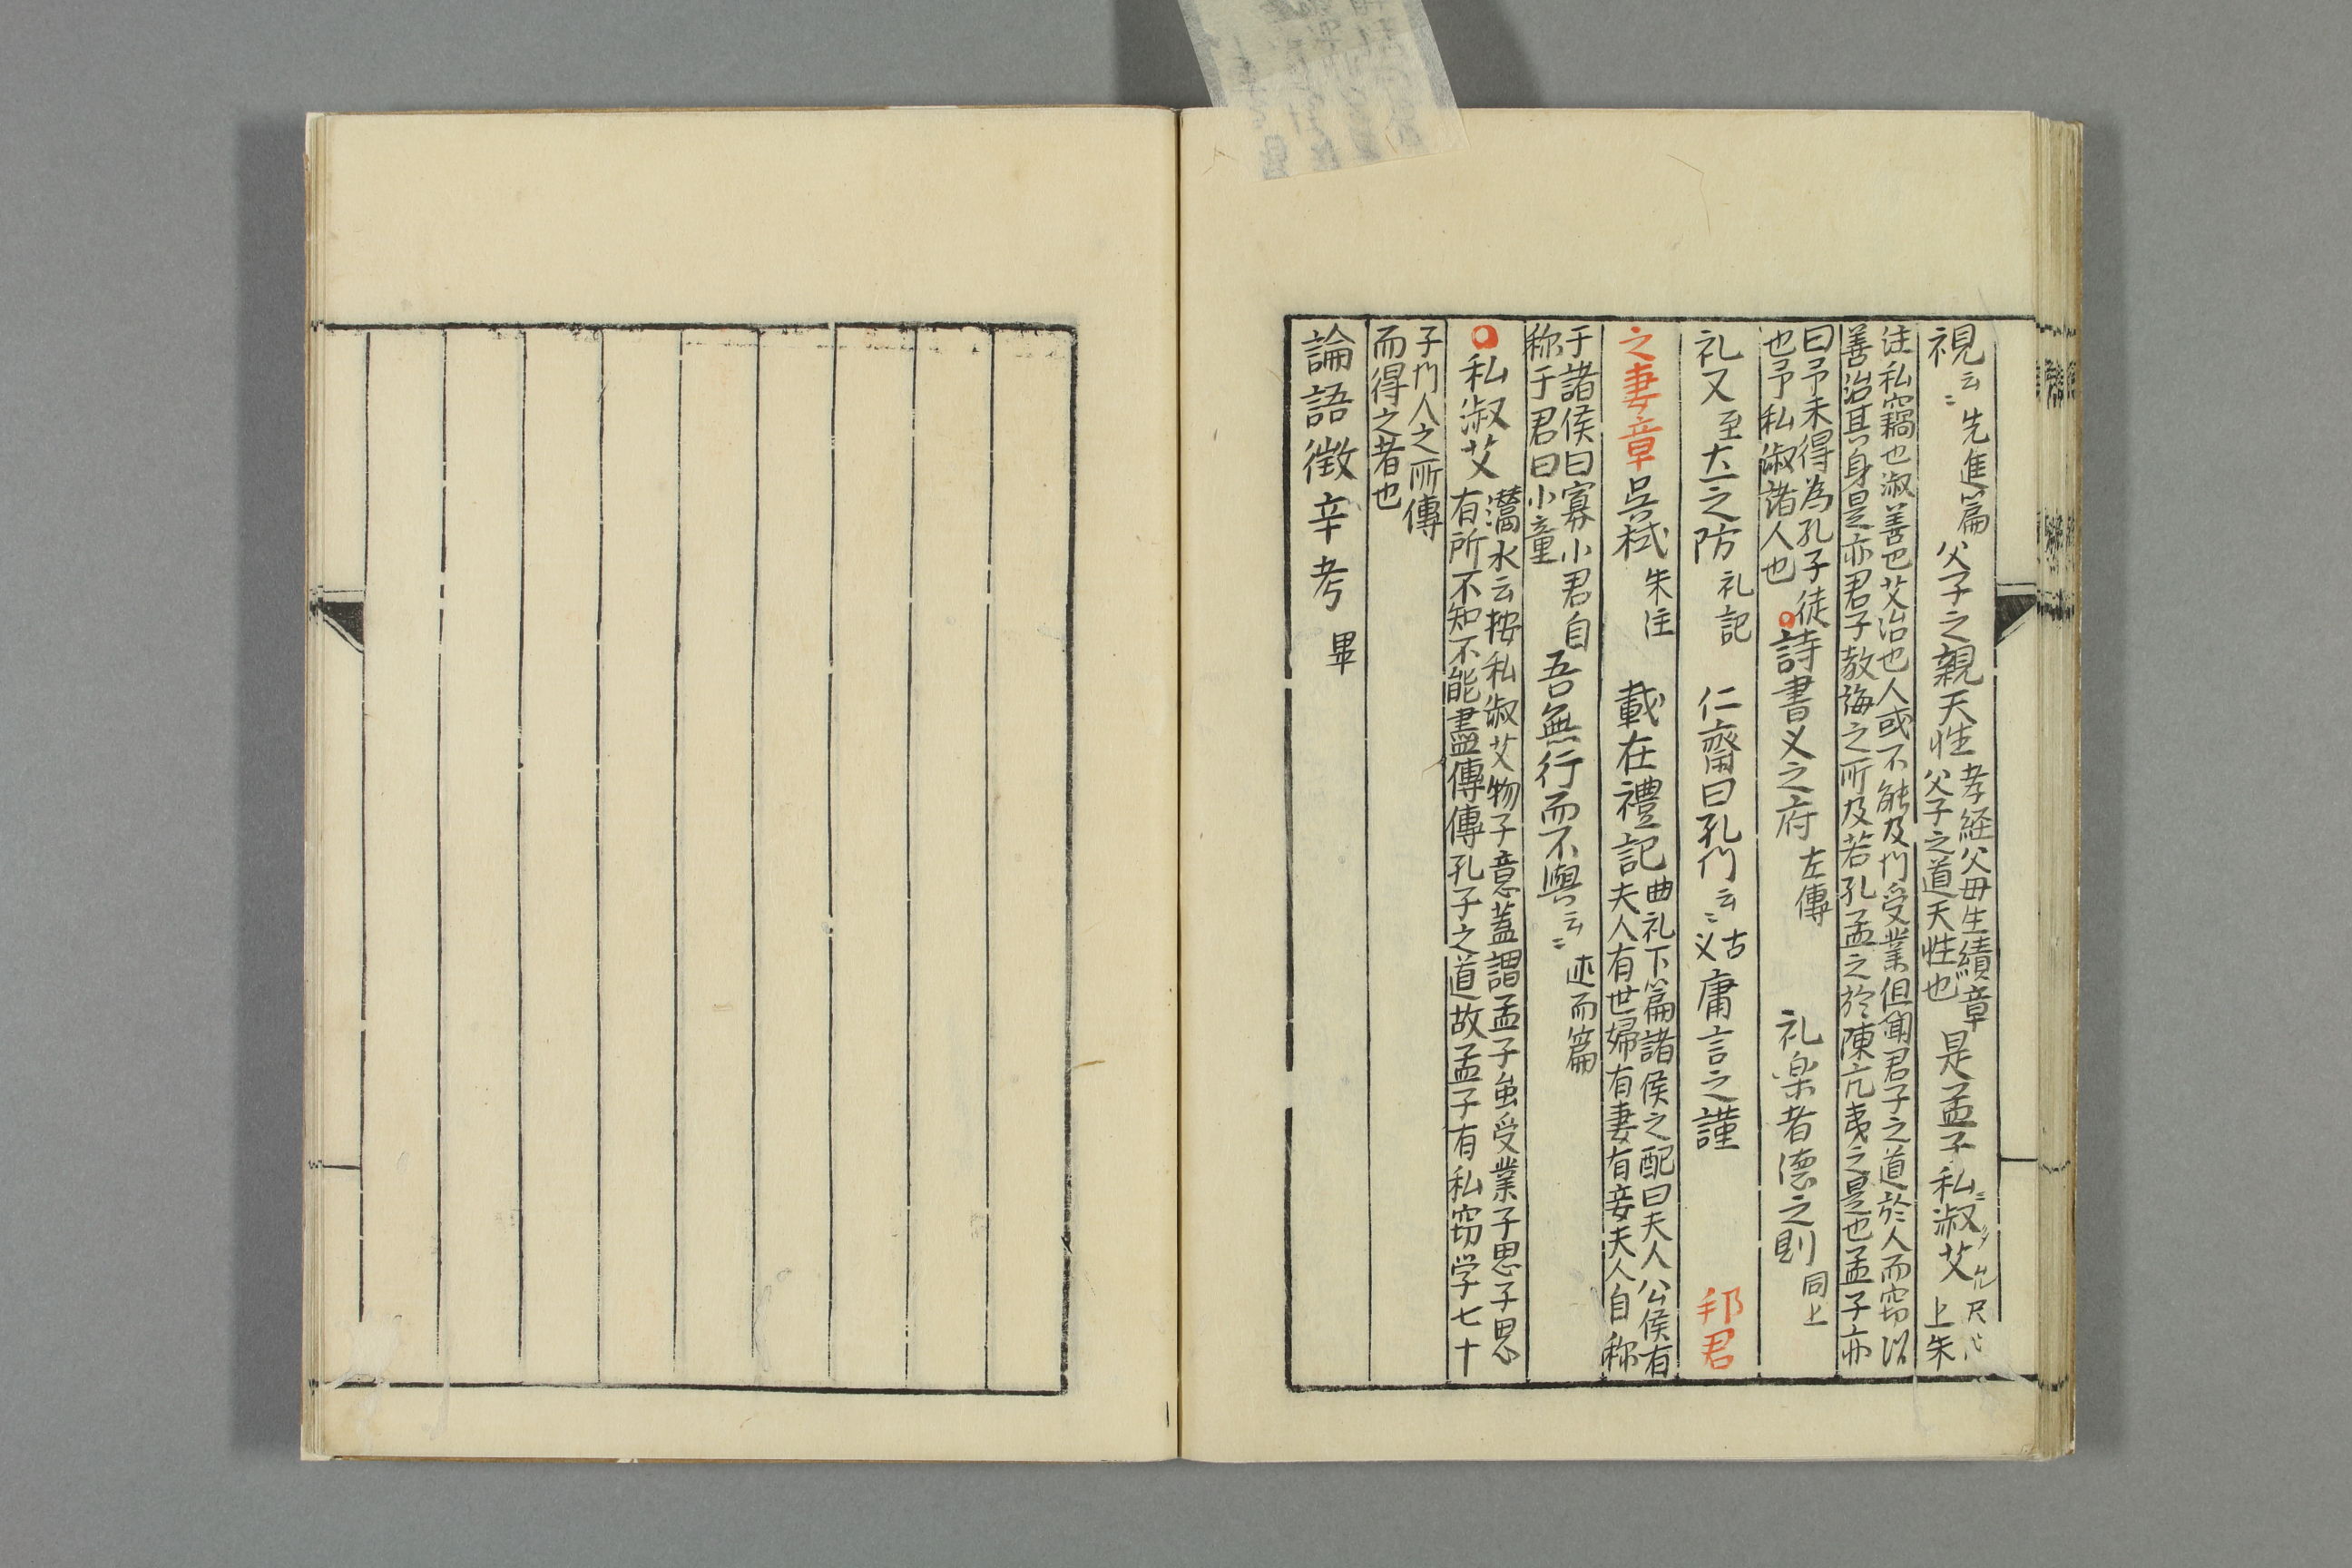 視云〻先進篇父子之親天性孝経父母生績章父子之道天性也是孟子私淑艾上朱
注私竊也淑善也艾治也人或不能及門受業但聞君子之道於人而窃以
善治其身是亦君子教誨之所及若孔孟之於陳亢夷之是也孟子亦
曰予未得為孔子徒
也予私淑諸人也○詩書义之府左傳 礼楽者德之則同上
礼又至大之防礼記 仁齋曰孔門云〻古义庸言之謹 邦君
之妻章吳棫朱注 載在禮記曲礼下篇諸侯之配曰夫人公侯有
夫人有世婦有妻有妾夫人自称
于諸侯曰寡小君自
称于君曰小童吾無行而不與云〻述而篇
○私淑艾灊水云按私淑艾物子意蓋謂孟子虽受業子思子思
有所不知不能盡傳傳孔子之道故孟子有私窃学七十
子門人之所傳
而得之者也
論語徵辛考 畢